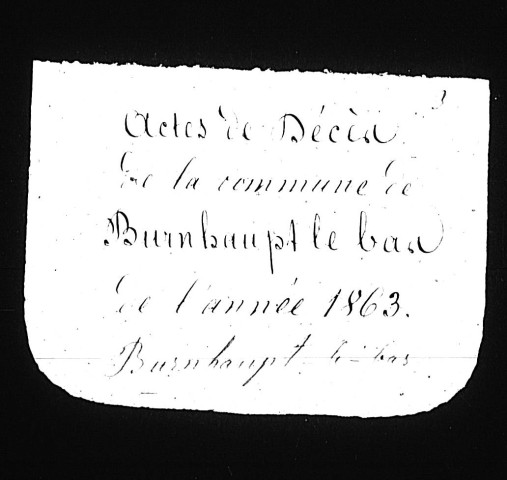 Actes de Décès
de la commune de
Burnhaupt le bas
de l'année 1863.
Burnhaupt le-bas